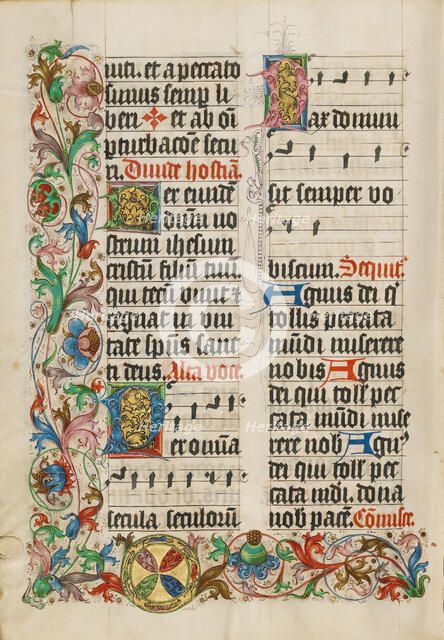 iuti. et a peccato
simus semp li
beri et ab oi
pturbacōe secu
ri. Diuide hostiā.
Per eunde
dm̄ no
strum ihesum
cristū filiū tuū
qui tecū viuit ⁊
regnat in vni
tate spūs sanc
ti deus. Alta voce.
Per omnia
secula seculorum
Pax domini
sit semper vo
biscum. Sequit̄
Agnus dei q̄
tollis peccata
mūdi miserere
nobis Agnus
dei qui toll' pec
cata mūdi mise
rere nob' Agn9
dei qui toll' pec
cata mūdi. dona
nob' pacē. Cōmisce.
Heritage